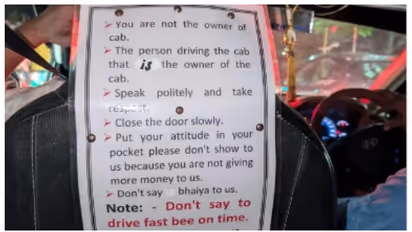 ➢ You are not the owner of
cab.
➢ The person driving the cab
that is the owner of the
cab.
➢ Speak politely and take
respect.
➢ Close the door slowly.
➢ Put your attitude in your
pocket please don't show to
us because you are not giving
more money to us.
➢ Don't say bhaiya to us.
Note: - Don't say to
drive fast bee on time.